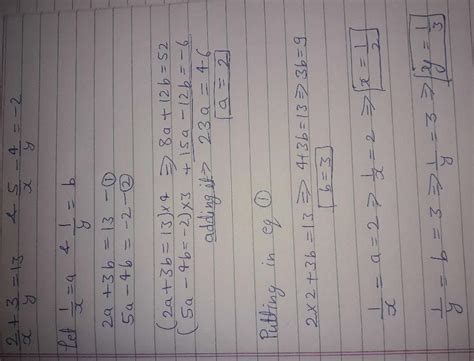 2/x + 3/y = 13 & 5/x - 4/y = -2
Let 1/x = a & 1/y = b
2a + 3b = 13 - ①
5a - 4b = -2 - ②
(2a + 3b = 13) x 4 ⇒ 8a + 12b = 52
(5a - 4b = -2) x 3 + 15a - 12b = -6
adding it ⇒ 23a = 46
a = 2
Putting in eq ①
2 x 2 + 3b = 13 ⇒ 4 + 3b = 13 ⇒ 3b = 9
b = 3
1/x = a = 2 ⇒ 1/x = 2 ⇒ x = 1/2
1/y = b = 3 ⇒ 1/y = 3 ⇒ y = 1/3